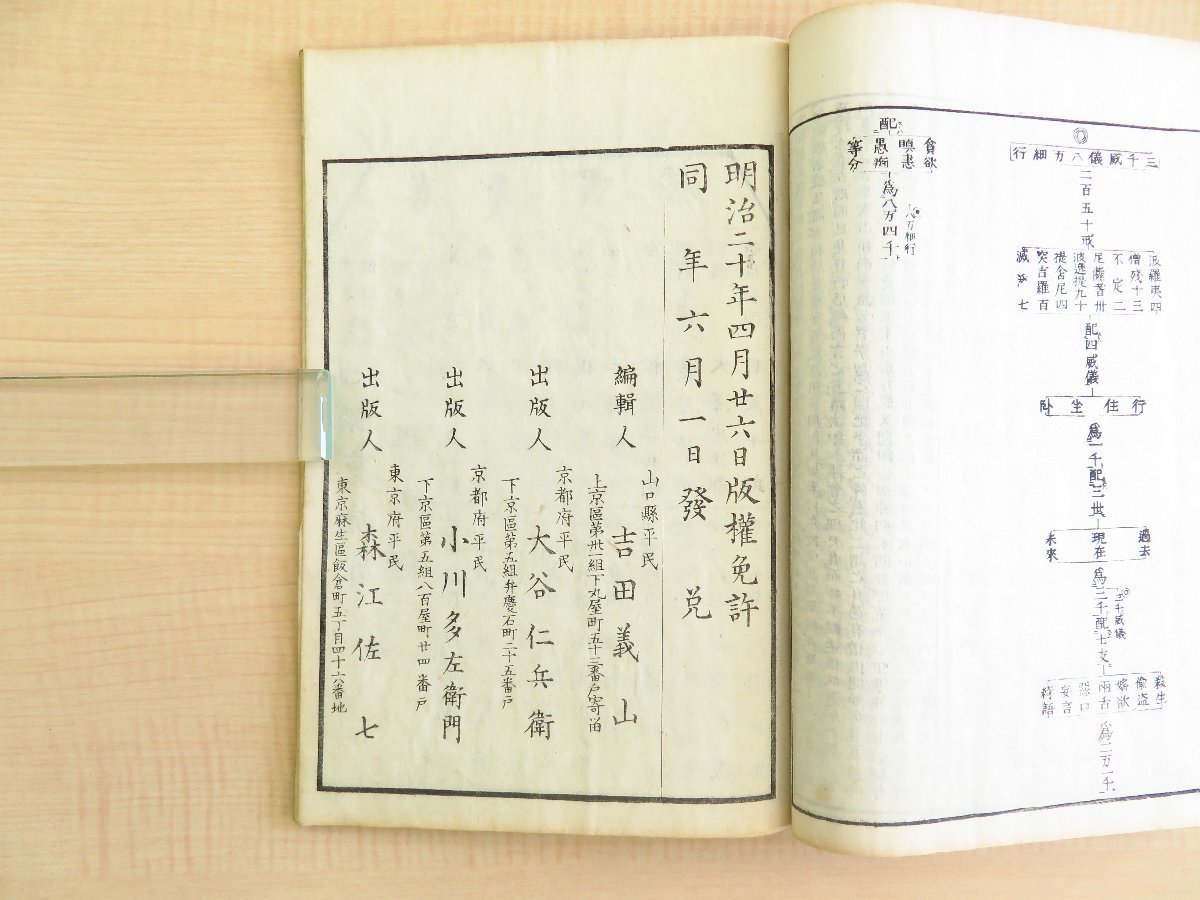 三千威儀八万細行
二百五十戒
波羅夷四
僧残十三
不定二
尼薩耆卅
波逸提九十
提舎尼四
突吉羅百
滅諍七
配四威儀
行住坐臥
為一千配三世
過去
現在
未來
為三千配七支
三千威儀
殺生
偸盗
婬欲
兩舌
惡口
妄言
綺語
為二万一千
配
貪欲
瞋恚
愚痴
等分
為八万四千
八万細行
明治二十年四月廿六日版權免許
同年六月一日發兌
山口縣平民
編輯人 吉田義山
上京區第卅一組下丸屋町五十三番戸寄畄
京都府平民
出版人 大谷仁兵衛
下京區第五組弁慶石町二十五番戸
京都府平民
出版人 小川多左衛門
下京區第五組八百屋町廿四番戸
東京府平民
出版人 森江佐七
東京麻生區飯倉町五丁目四十六番地